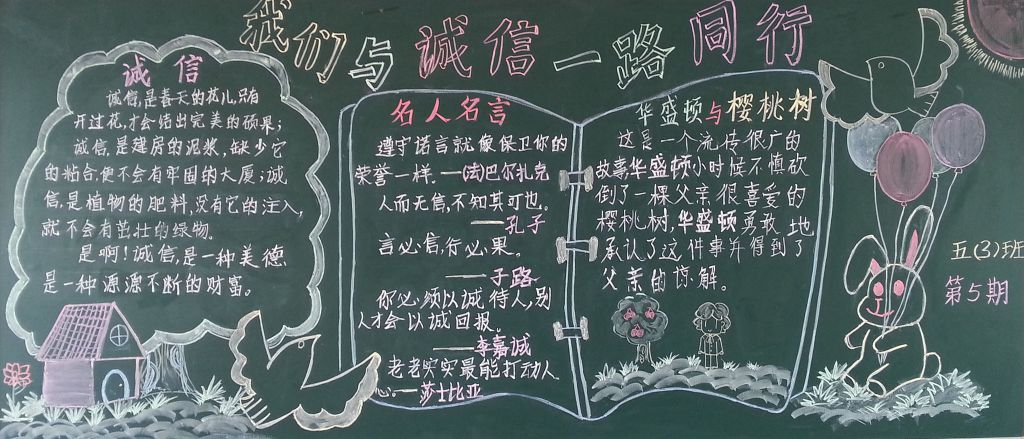 我们与诚信一路同行
诚信
诚信,是春天的花儿,只有
开过花,才会结出完美的硕果;
诚信,是建房的泥浆,缺少它
的粘合,便不会有牢固的大厦;诚
信,是植物的肥料,没有它的注入,
就不会有茁壮的绿物。
是啊!诚信,是一种美德
是一种源源不断的财富。
名人名言
遵守诺言就像保卫你的
荣誉一样。——(法)巴尔扎克
人而无信,不知其可也。
——孔子
言必信,行必果。
——子路
你必须以诚待人,别
人才会以诚回报。
——李嘉诚
老老实实最能打动人
心。——莎士比亚
华盛顿与樱桃树
这是一个流传很广的
故事华盛顿小时候不慎砍
倒了一棵父亲很喜爱的
樱桃树,华盛顿勇敢地
承认了这件事并得到了
父亲的谅解。
五(3)班
第5期